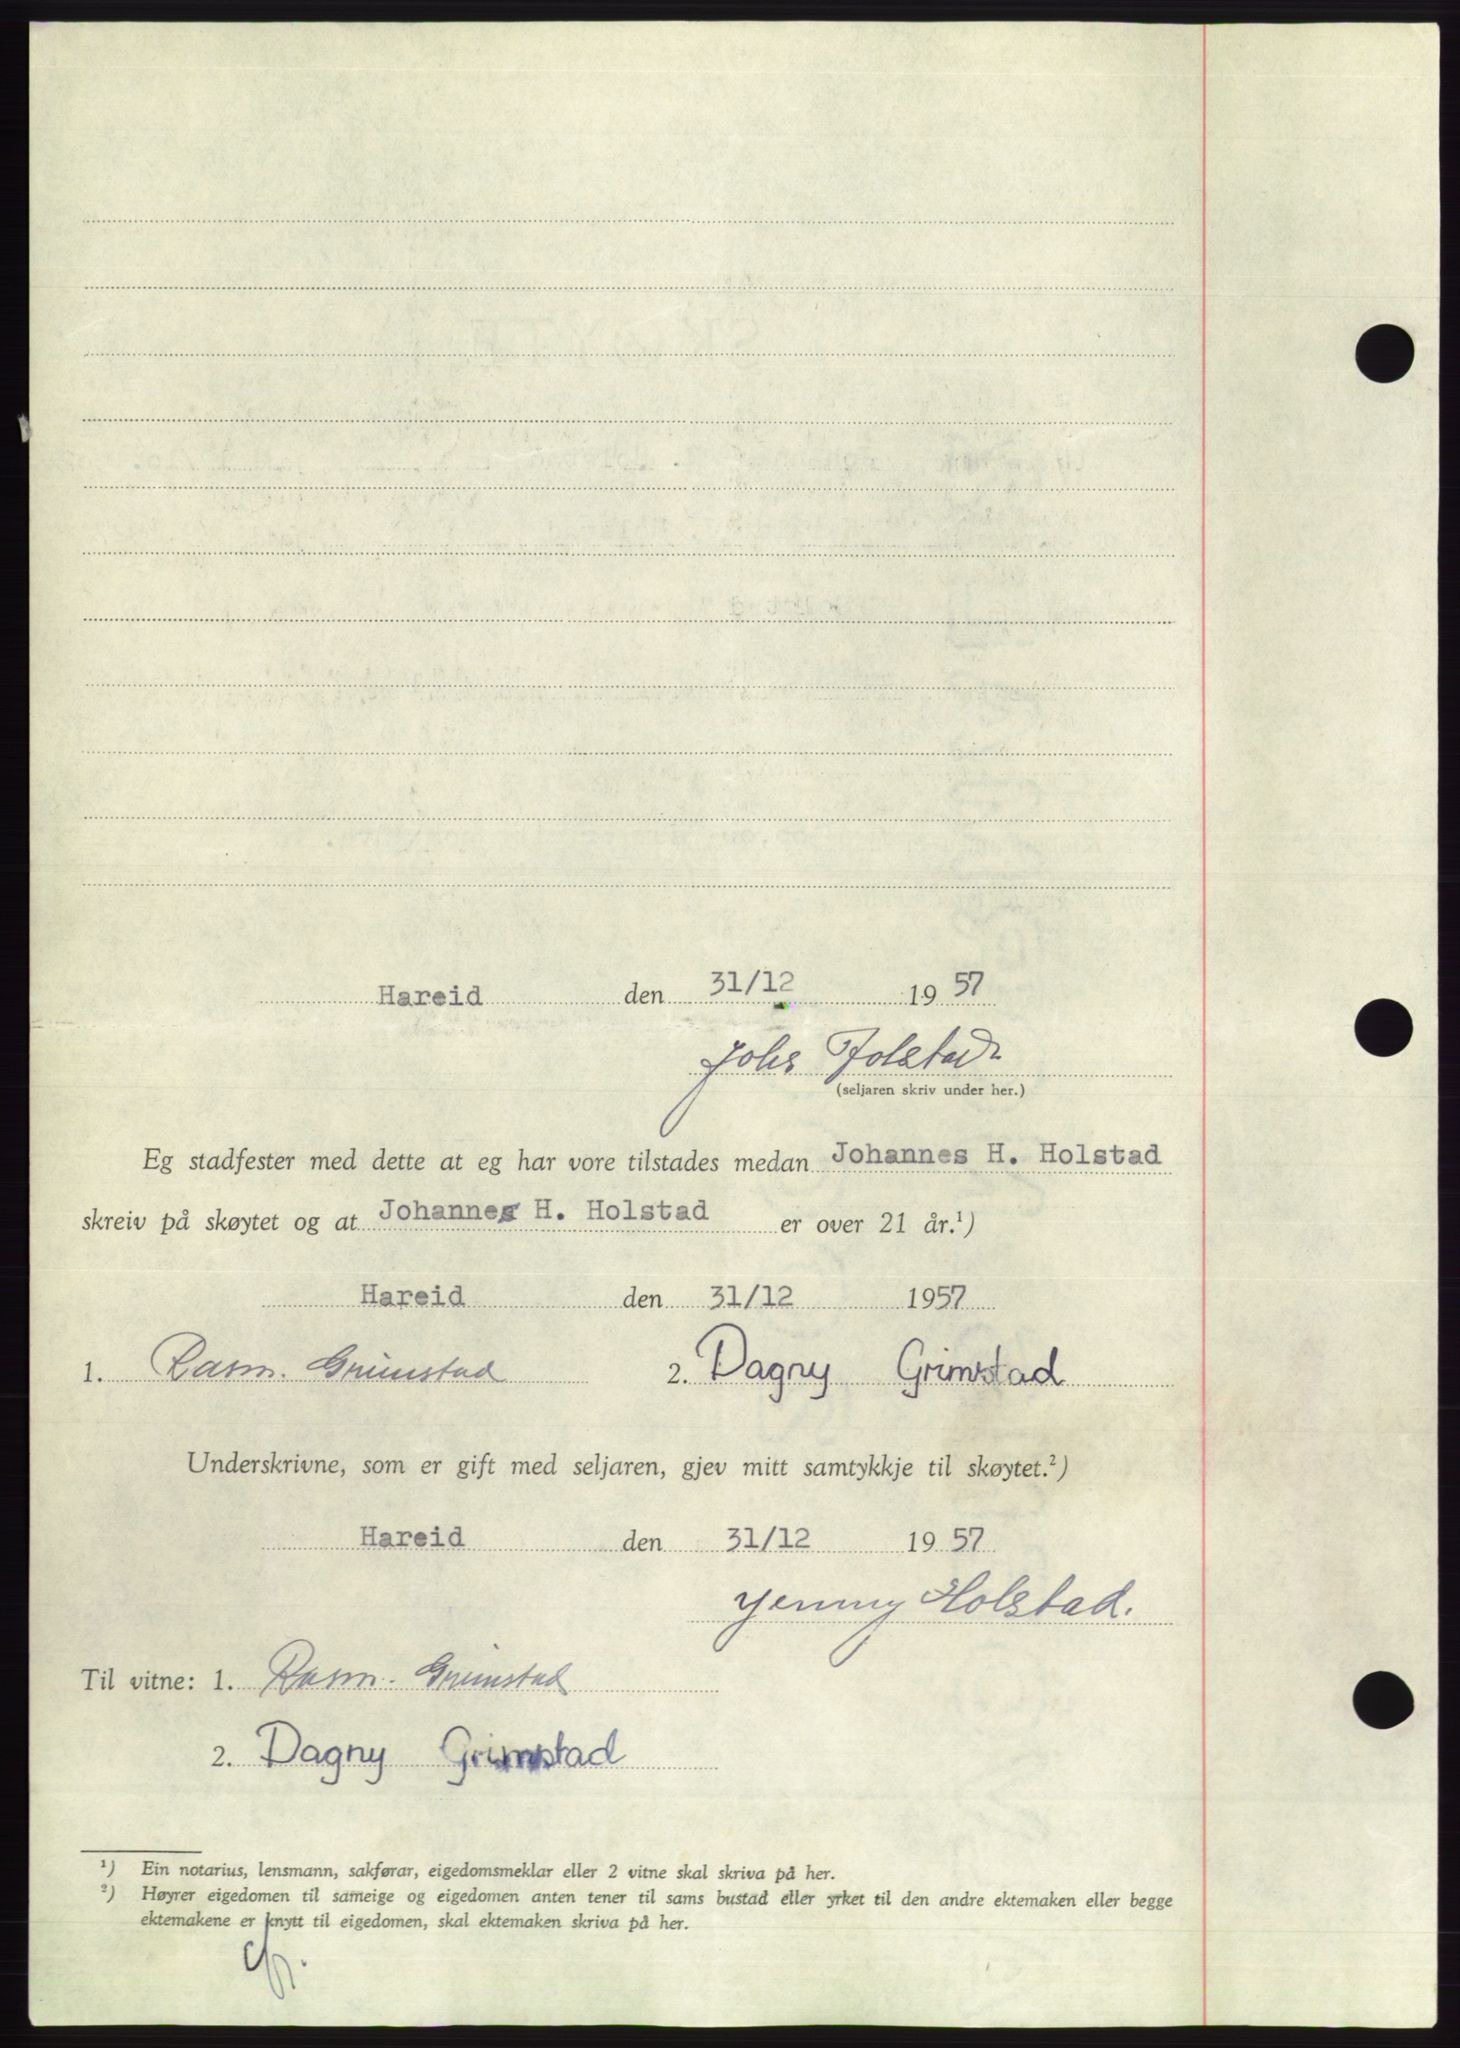 Hareid den 31/12 1957
Johs Holstad
(seljaren skriv under her.)
Eg stadfester med dette at eg har vore tilstades medan Johannes H. Holstad
skreiv på skøytet og at Johannes H. Holstad er over 21 år.¹)
Hareid den 31/12 1957
1. Rasm. Grimstad 2. Dagny Grimstad
Underskrivne, som er gift med seljaren, gjev mitt samtykkje til skøytet.²)
Hareid den 31/12 1957
Jenny Holstad.
Til vitne: 1. Rasm. Grimstad
2. Dagny Grimstad
¹) Ein notarius, lensmann, sakførar, eigedomsmeklar eller 2 vitne skal skriva på her.
²) Høyrer eigedomen til sameige og eigedomen anten tener til sams bustad eller yrket til den andre ektemaken eller begge
ektemakene er knytt til eigedomen, skal ektemaken skriva på her.